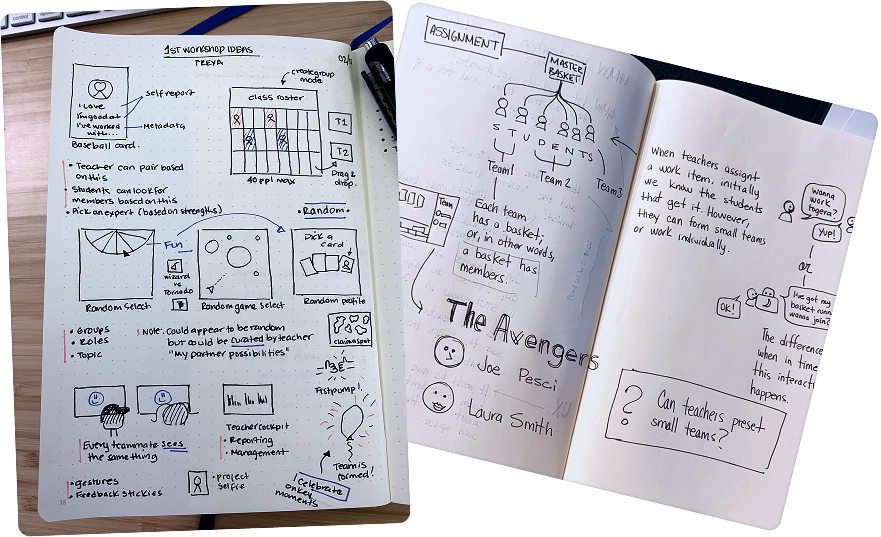 1ST WORKSHOP IDEAS
FREYA
02/
create group
mode
I love
I'm good at
I've worked
with...
self report
Metadata
Baseball card.
class roster
T1
T2
40 ppl max
Drag &
drop.
• Teacher can pair based
on this
• Students can look for
members based on this
• Pick an expert (based on strengths)
• Random •
Fun
wizard
vs
Tornado
Pick a
card
Random Select
Random game select
Random profile
• Groups
• Roles
• Topic
Note: Could appear to be random
but could be curated by teacher
"My partner possibilities"
claim a spot
Fist pump!
Every teammate sees
the same thing
Teacher cockpit
• Reporting
• Management
Team is
formed!
• gestures
• Feedback stickies
• project
selfie
Celebrate
on key
moments
38
ASSIGNMENT
MASTER
BASKET
STUDENTS
Team 1
Team 2
Team 3
Team
Each team
has a basket,
or, in other words,
a basket has
members.
The Avengers
Joe Pesci
Laura Smith
when teachers assignt
a work item, initially
we know the students
that get it. However,
they can form small teams
or work individually.
wanna
work
togera?
Yup!
or
I've got my
basket runn
wanna join?
OK!
The difference
when in time
this interacti
happens.
?
Can teachers preset
small teams?